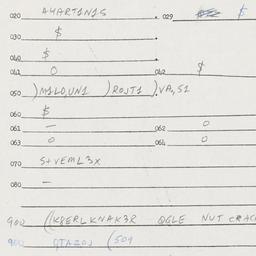 020 AHART1N1S . 029 $
030 $ .
040 $ .
041 0 042 $
050 )M1LO,UN1 )ROJT1 ).VA,S1
060 $
061 – 062 0
063 0 064 0
070 S+VEML3X
080 –
900 ((K8ERLKNAK3R QGLE NUT CRAC
900 QTAZOJ (509